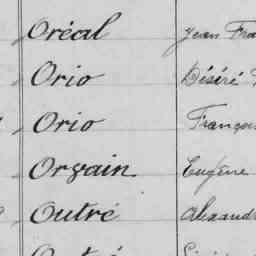 Oréal Jean Fra
Orio Désiré
Orio Françoi
Orvain Eugène
Outré Alexandr